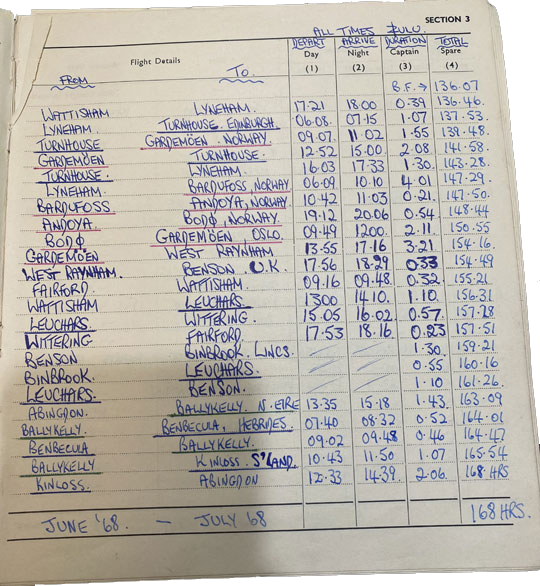 SECTION 3
ALL TIMES ZULU.
DEPART ARRIVE DURATION TOTAL
Flight Details Day Night Captain Spare
FROM TO. (1) (2) (3) (4)
B.F → 136.07
WATTISHAM LYNEHAM. 17.21 18.00 0.39 136.46.
LYNEHAM. TURNHOUSE. EDINBURGH. 06.08. 07.15 1.07 137.53.
TURNHOUSE GARDEMÖEN. NORWAY. 09.07. 11.02 1.55 139.48.
GARDEMÖEN TURNHOUSE. 12.52 15.00 2.08 141.58.
TURNHOUSE. LYNEHAM. 16.03 17.33 1.30. 143.28.
LYNEHAM. BARDUFOSS, NORWAY 06.09 10.10 4.01 147.29.
BARDUFOSS ANDOYA, NORWAY. 10.42 11.03 0.21. 147.50.
ANDOYA. BODØ, NORWAY. 19.12 20.06 0.54 148.44
BODØ GARDEMÖEN, OSLO. 09.49 1200. 2.11. 150.55
GARDEMÖEN WEST RAYNHAM 13.55 17.16 3.21. 154.16.
WEST RAYNHAM. BENSON U.K. 17.56 18.29 0.33 154.49
FAIRFORD WATTISHAM. 09.16 09.48. 0.32. 155.21.
WATTISHAM LEUCHARS. 1300 14.10. 1.10. 156.31
LEUCHARS. WITTERING. 15.05 16.02. 0.57. 157.28
WITTERING FAIRFORD 17.53 18.16. 0.23 157.51
BENSON BINBROOK. LINCS. 1.30. 159.21
BINBROOK. LEUCHARS. 0.55 160.16
LEUCHARS. BENSON. 1.10 161.26.
ABINGDON. BALLYKELLY. N. EIRE 13.35 15.18 1.43. 163.09
BALLYKELLY. BENBECULA, HEBRIDES. 07.40 08.32 0.52 164.01
BENBECULA BALLYKELLY. 09.02 09.48 0.46 164.47
BALLYKELLY KINLOSS. S'LAND. 10.43 11.50 1.07 165.54
KINLOSS. ABINGDON 12.33 14.39. 2.06. 168 HRS
JUNE '68. — JULY '68 168 HRS.